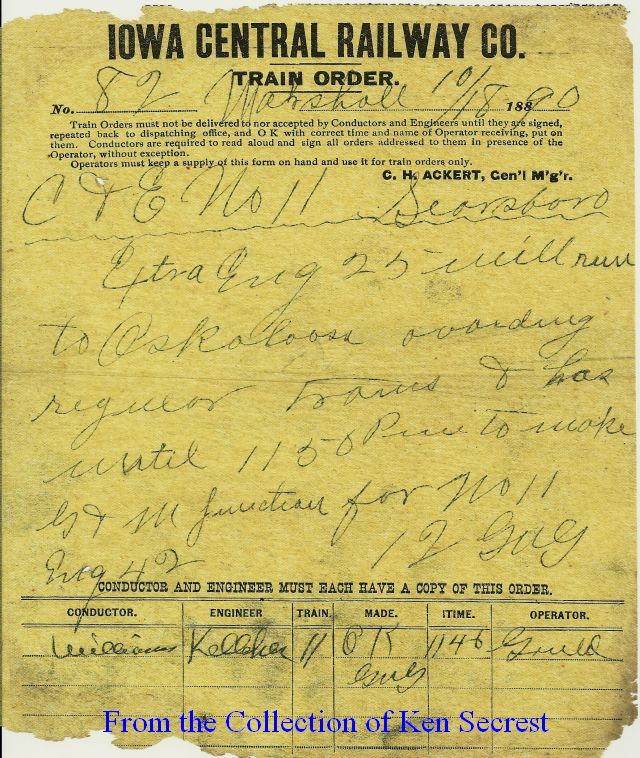 IOWA CENTRAL RAILWAY CO.
TRAIN ORDER.
No. 82 Marshall 10/18 1890
Train Orders must not be delivered to nor accepted by Conductors and Engineers until they are signed,
repeated back to dispatching office, and O K with correct time and name of Operator receiving, put on
them. Conductors are required to read aloud and sign all orders addressed to them in presence of the
Operator, without exception.
Operators must keep a supply of this form on hand and use it for train orders only.
C. H. ACKERT, Gen'l M'g'r.
C & E No 11 Searsboro
Extra Eng 25 will run
to Oskaloosa avoiding
regular trains & has
until 1150 Pm to make
G & M junction for No 11
Eng 42 12
CONDUCTOR AND ENGINEER MUST EACH HAVE A COPY OF THIS ORDER.
CONDUCTOR. ENGINEER TRAIN. MADE. TIME. OPERATOR.
Williams Kelleher 11 OK 1146 Gould
From the Collection of Ken Secrest